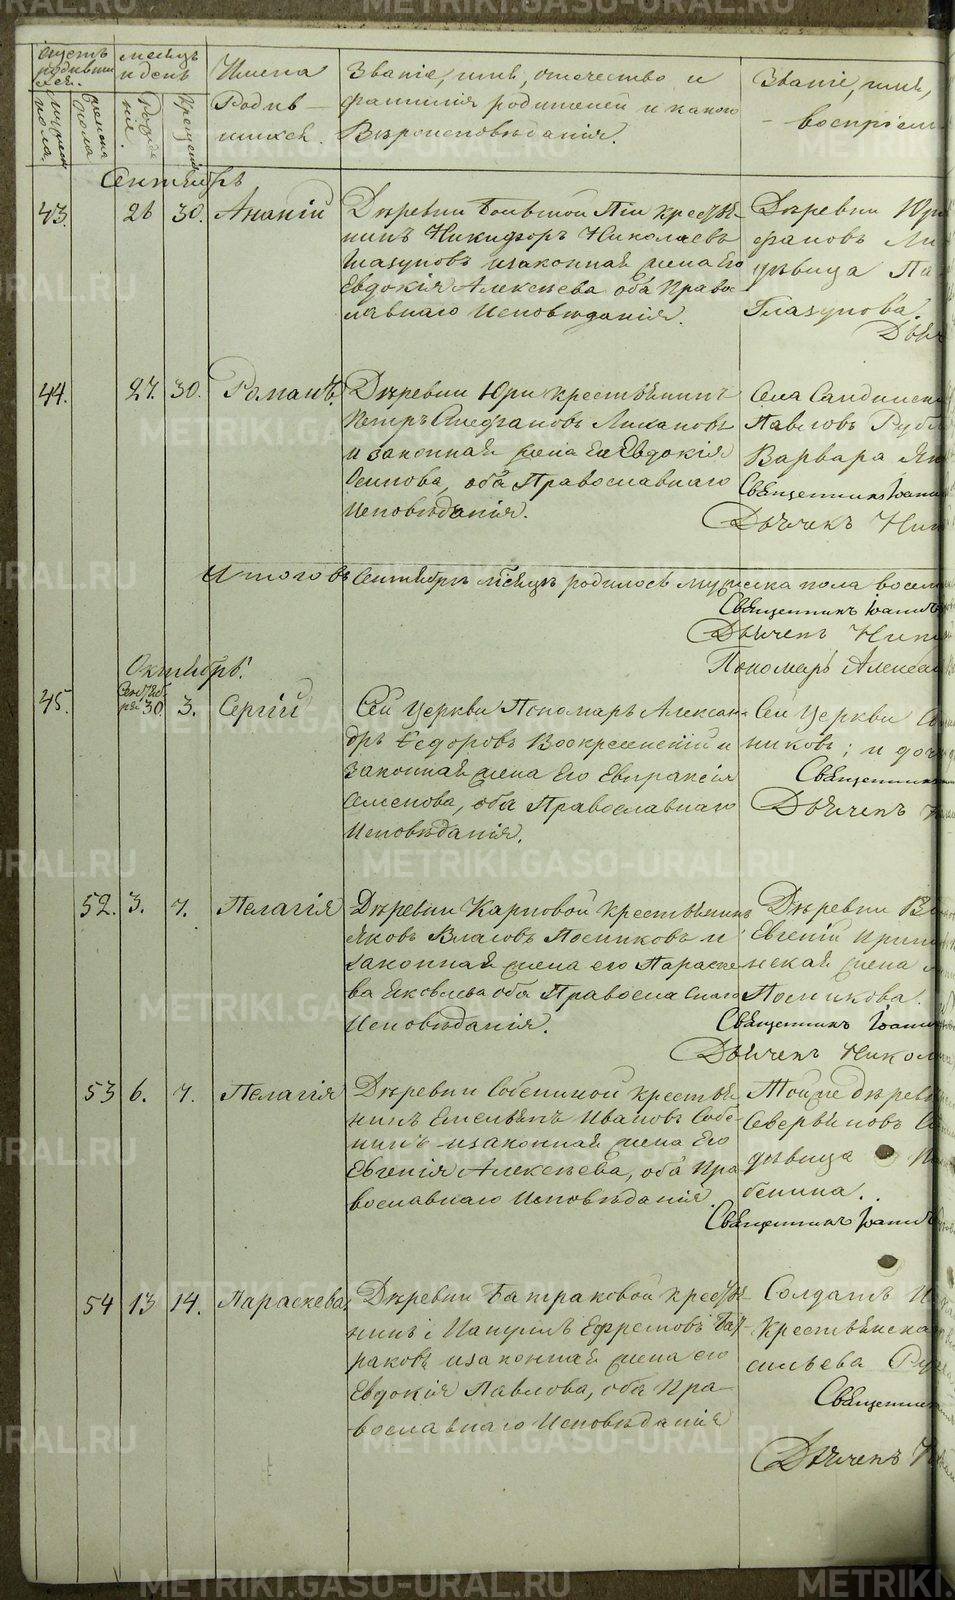 Счетъ родившихся.
Мѣсяцъ и день
Имена Родившихся.
Званіе, имя, отечество и фамилія родителей и какого Вѣроисповѣданія.
Званіе, имя,
воспріем
мужеска пола
женска пола
рожденія.
крещенія
Сентябрь
43. 26 30. Ананій
Деревни Большой Ти крестья-
нинъ Никифоръ Николаевъ
Глазуновъ и законная жена Его
Евдокія Алексѣева, оба Право-
славнаго Исповѣданія.
Деревни Юри
фановъ Ли
дѣвица Па
Глазунова.
Дьяч
44. 27. 30. Романъ.
Деревни Юри крестьянинъ
Петръ Стефановъ Ликановъ
и законная жена Его Евдокія
Осипова, оба Православнаго
Исповѣданія.
Села Сандинск
Павловъ Руб
Варвара Як
Священникъ Іоанн
Дьячекъ Ник
Итого въ Сентябрѣ мѣсяцѣ родилось мужеска пола восем
Священникъ Іоаннъ
Дьячекъ Ник
Пономарь Алекса
Октябрь.
45. Сентяб-
ря 30 3. Сергій
Сей Церкви Пономарь Алексан-
дръ Ѳедоровъ Воскресенскій и
Законная жена Его Евпраксія
Семенова, оба Православнаго
Исповѣданія.
Сей Церкви
никовъ; и доч
Священник
Дьячекъ
52. 3. 7. Пелагія
Деревни Карповой крестьянинъ
Яковъ Власовъ Посниковъ и
законная жена его Параске-
ва Яковлева оба Православнаго
Исповѣданія.
Деревни
Евгеній
нская жена
Посникова.
Священникъ Іоанн
Дьячекъ Никол
53 6. 7. Пелагія
Деревни Собениной крестья-
нинъ Емельянъ Ивановъ Собе-
нинъ и законная жена Его
Евгенія Алексѣева, оба Пра-
вославнаго Исповѣданія
Той же дерев
Северьяновъ
дѣвица
бенина.
Священникъ Іоаннъ
54 13 14. Параскева
Деревни Батраковой кресть-
янинъ Мануилъ Ефремовъ Бат-
раковъ и законная жена его
Евдокія Павлова, оба Пра-
вославнаго Исповѣданія
Солдатъ
Крестьянска
сильева
Священник
Дьячекъ
METRIKI.GASO-URAL.RU